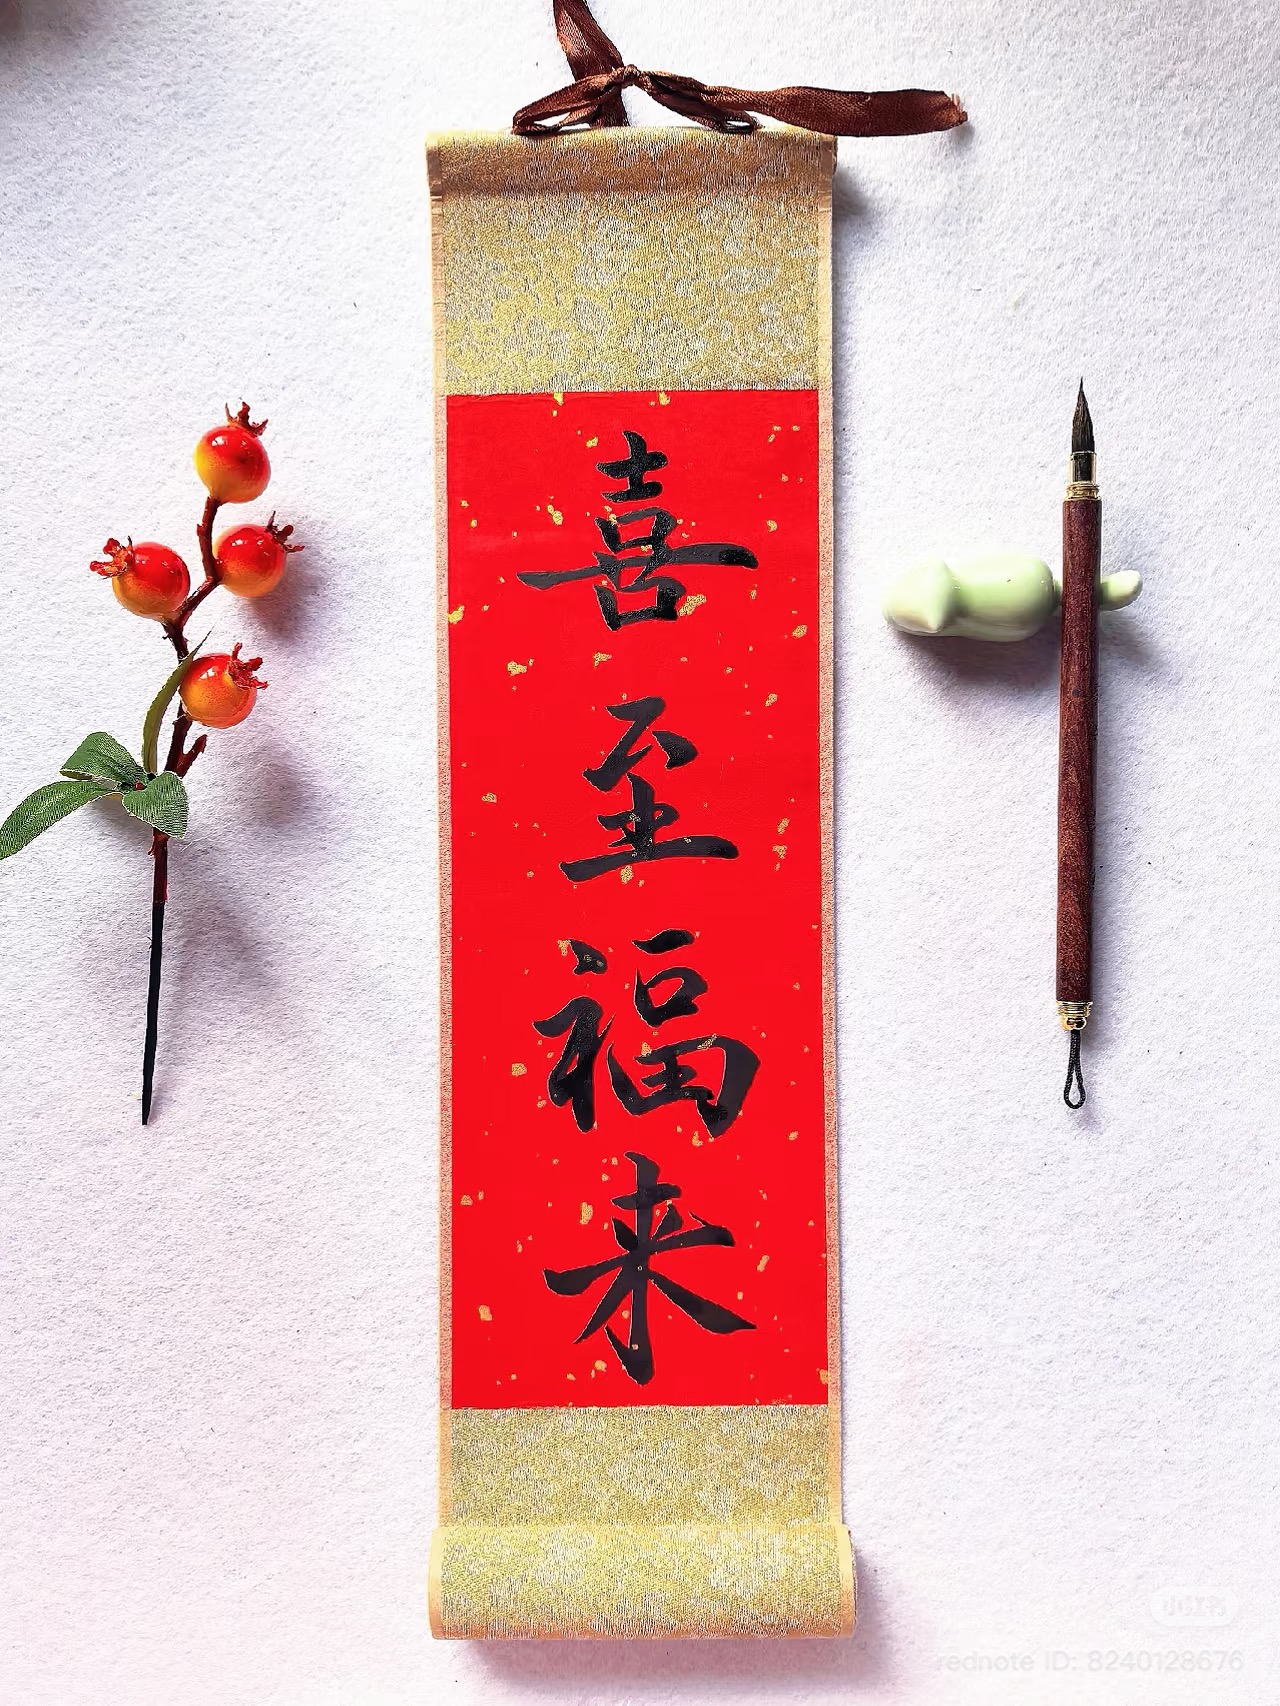 喜至福来
小红书
rednote ID: 8240128676